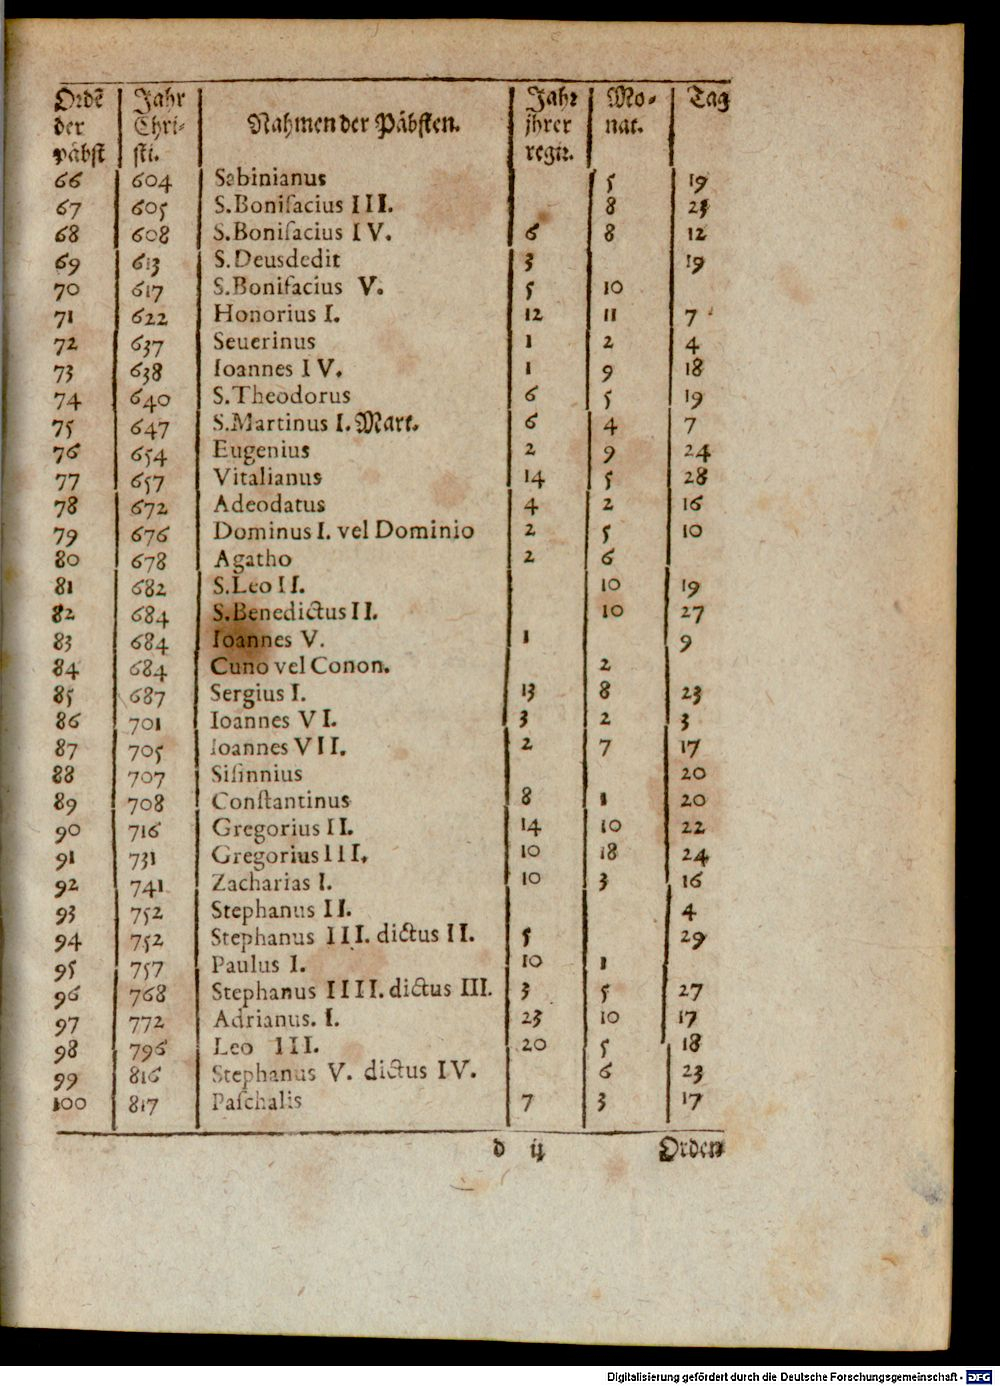 Ordē | Jahr | Nahmen der Päbsten. | Jahr | Mo- | Tag
der | Chri- | ihrer | nat.
päbst | sti. | regir.
66 | 604 | Sabinianus | | 5 | 19
67 | 605 | S. Bonifacius III. | | 8 | 23
68 | 608 | S. Bonifacius IV. | 6 | 8 | 12
69 | 613 | S. Deusdedit | 3 | | 19
70 | 617 | S. Bonifacius V. | 5 | 10 |
71 | 622 | Honorius I. | 12 | 11 | 7
72 | 637 | Seuerinus | 1 | 2 | 4
73 | 638 | Ioannes IV. | 1 | 9 | 18
74 | 640 | S. Theodorus | 6 | 5 | 19
75 | 647 | S. Martinus I. Mart. | 6 | 4 | 7
76 | 654 | Eugenius | 2 | 9 | 24
77 | 657 | Vitalianus | 14 | 5 | 28
78 | 672 | Adeodatus | 4 | 2 | 16
79 | 676 | Dominus I. vel Dominio | 2 | 5 | 10
80 | 678 | Agatho | 2 | 6 |
81 | 682 | S. Leo II. | | 10 | 19
82 | 684 | S. Benedictus II. | | 10 | 27
83 | 684 | Ioannes V. | 1 | | 9
84 | 684 | Cuno vel Conon. | | 2 |
85 | 687 | Sergius I. | 13 | 8 | 23
86 | 701 | Ioannes VI. | 3 | 2 | 3
87 | 705 | Ioannes VII. | 2 | 7 | 17
88 | 707 | Siſinnius | | | 20
89 | 708 | Conſtantinus | 8 | 1 | 20
90 | 716 | Gregorius II. | 14 | 10 | 22
91 | 731 | Gregorius III. | 10 | 18 | 24
92 | 741 | Zacharias I. | 10 | 3 | 16
93 | 752 | Stephanus II. | | | 4
94 | 752 | Stephanus III. dictus II. | 5 | | 29
95 | 757 | Paulus I. | 10 | 1 |
96 | 768 | Stephanus IIII. dictus III. | 3 | 5 | 27
97 | 772 | Adrianus. I. | 23 | 10 | 17
98 | 796 | Leo III. | 20 | 5 | 18
99 | 816 | Stephanus V. dictus IV. | | 6 | 23
100 | 817 | Paſchalis | 7 | 3 | 17
d ij Orden
Digitalisierung gefördert durch die Deutsche Forschungsgemeinschaft - DFG